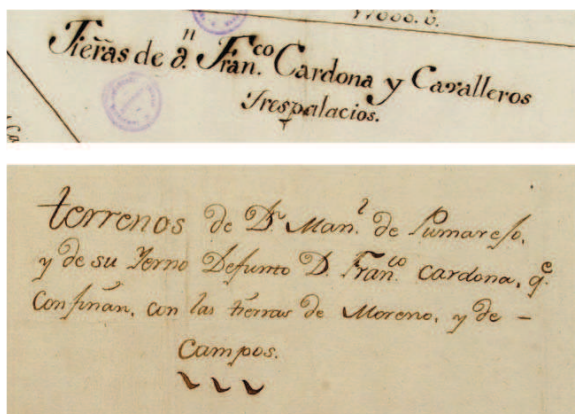 17000. v.
Tierras de d.ⁿ Fran.ᶜᵒ Cardona y Cavalleros
Trespalacios.
terrenos de Dⁿ Man.ˡ de Pumarejo,
y de su Yerno Defunto D. Fran.ᶜᵒ Cardona, q.ᵉ
Confinan, con las tierras de Moreno, y de -
Campos.